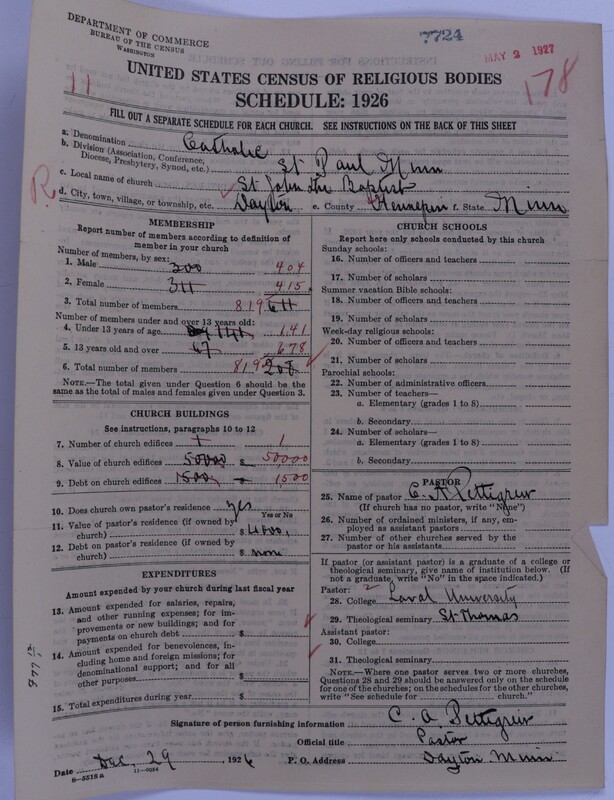 DEPARTMENT OF COMMERCE
BUREAU OF THE CENSUS
WASHINGTON
7724
MAY 2 1927
178
11
UNITED STATES CENSUS OF RELIGIOUS BODIES
SCHEDULE: 1926
FILL OUT A SEPARATE SCHEDULE FOR EACH CHURCH. SEE INSTRUCTIONS ON THE BACK OF THIS SHEET
a. Denomination Catholic
b. Division (Association, Conference, Diocese, Presbytery, Synod, etc.) St Paul Minn
c. Local name of church St John the Baptist
R
d. City, town, village, or township, etc. Dayton e. County Hennepin f. State Minn
MEMBERSHIP
Report number of members according to definition of member in your church
Number of members, by sex:
1. Male 300 404
2. Female 311 415
3. Total number of members 819 611
Number of members under and over 13 years old:
4. Under 13 years of age 141 141
5. 13 years old and over 67 678
6. Total number of members 819 208
NOTE.—The total given under Question 6 should be the same as the total of males and females given under Question 3.
CHURCH BUILDINGS
See instructions, paragraphs 10 to 12
7. Number of church edifices 1 1
8. Value of church edifices 50000 $ 50,000
9. Debt on church edifices 1500 1500
10. Does church own pastor's residence yes
Yes or No
11. Value of pastor's residence (if owned by church) $ 4000,
12. Debt on pastor's residence (if owned by church) $ none
EXPENDITURES
Amount expended by your church during last fiscal year
13. Amount expended for salaries, repairs, and other running expenses; for improvements or new buildings; and for payments on church debt $
14. Amount expended for benevolences, including home and foreign missions; for denominational support; and for all other purposes $
15. Total expenditures during year $
CHURCH SCHOOLS
Report here only schools conducted by this church
Sunday schools:
16. Number of officers and teachers
17. Number of scholars
Summer vacation Bible schools:
18. Number of officers and teachers
19. Number of scholars
Week-day religious schools:
20. Number of officers and teachers
21. Number of scholars
Parochial schools:
22. Number of administrative officers
23. Number of teachers—
a. Elementary (grades 1 to 8)
b. Secondary
24. Number of scholars—
a. Elementary (grades 1 to 8)
b. Secondary
PASTOR
25. Name of pastor C. A Pettigrew
(If church has no pastor, write "None")
26. Number of ordained ministers, if any, employed as assistant pastors
27. Number of other churches served by the pastor or his assistants
If pastor (or assistant pastor) is a graduate of a college or theological seminary, give name of institution below. (If not a graduate, write "No" in the space indicated.)
Pastor:
28. College Laval University
29. Theological seminary St Thomas
Assistant pastor:
30. College
31. Theological seminary
NOTE.—Where one pastor serves two or more churches, Questions 28 and 29 should be answered only on the schedule for one of the churches; on the schedules for the other churches, write "See schedule for church."
Signature of person furnishing information C. A. Pettigrew
Official title Pastor
Date Dec, 29 1926 P. O. Address Dayton Minn
8-5518a 11-9034